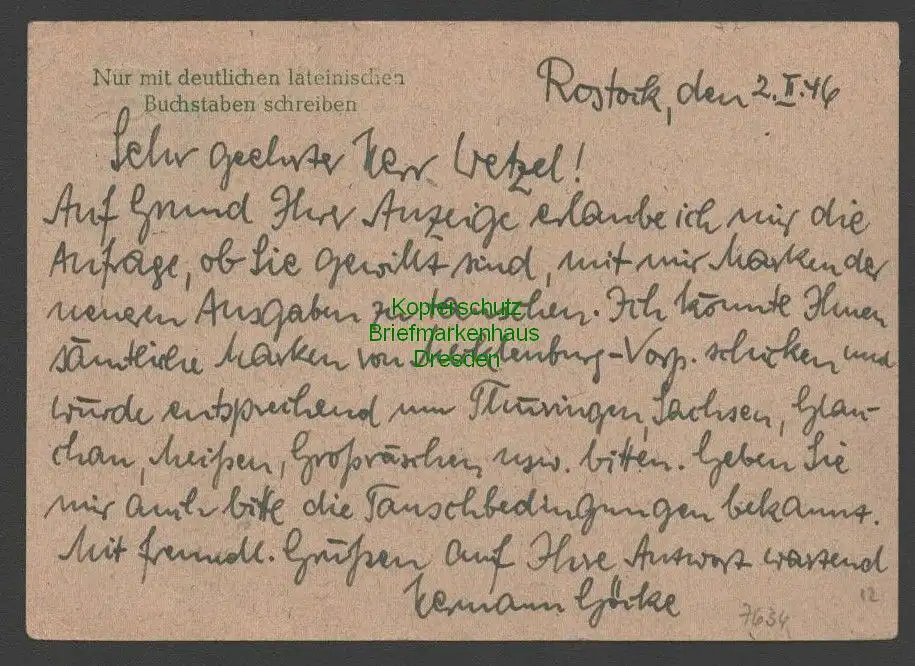 Nur mit deutlichen lateinischen
Buchstaben schreiben
Rostock, den 2.II.46
Sehr geehrter Herr Wetzel!
Auf Grund Ihrer Anzeige erlaube ich mir die
Anfrage, ob Sie gewillt sind, mit mir Marken der
neueren Ausgaben zu tauschen. Ich könnte Ihnen
sämtliche Marken von Mecklenburg-Vorp. schicken und
würde entsprechend um Thüringen, Sachsen, Glau-
chau, Meißen, Großräschen, usw. bitten. Geben Sie
mir auch bitte die Tauschbedingungen bekannt.
Mit freundl. Grüßen auf Ihre Antwort wartend
Hermann Göcke
Kopierschutz
Briefmarkenhaus
Dresden
7634
12